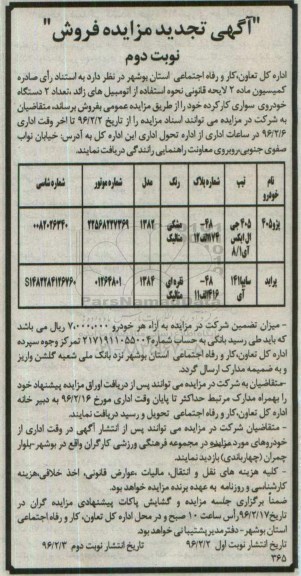 "آگهی تجدید مزایده فروش"
نوبت دوم
اداره کل تعاون،کار و رفاه اجتماعی استان بوشهر در نظر دارد به استناد رأی صادره
کمیسیون ماده ۲ لایحه قانونی نحوه استفاده از اتومبیل های زائد ،تعداد ۲ دستگاه
خودروی سواری کارکرده خود را از طریق مزایده عمومی بفروش برساند، متقاضیان
به شرکت در مزایده می توانند اسناد مزایده را از تاریخ ۹۶/۲/۲ تا آخر وقت اداری
۹۶/۲/۶ در ساعات اداری از اداره تحول اداری این اداره کل به آدرس: خیابان نواب
صفوی جنوبی،روبروی معاونت راهنمایی رانندگی دریافت نمایند.
نام خودرو تیپ شماره پلاک رنگ مدل شماره موتور شماره شاسی
پژو۴۰۵ ۴۰۵ جی ال ایکس آی۱/۸ ۴۸- ۱۷۴الف۱۱ مشکی متالیک ۱۳۸۲ ۲۲۵۶۸۲۲۷۳۶۹ ۰۰۸۲۰۲۶۳۴۰
پراید سایپا۱۴۱ آی ۴۸- ۴۱۶الف۱۱ نقره ای متالیک ۱۳۸۴ ۰۱۲۶۴۸۰۱ S۱۴۸۲۲۸۴۱۲۶۷۶۰
- میزان تضمین شرکت در مزایده به ازاء هر خودرو ۷۰۰۰،۰۰۰ ریال می باشد
که باید طی رسید بانکی به حساب شماره۲۱۷۱۹۱۱۰۵۵۰۰۴ تمرکز وجوه سپرده
اداره کل تعاون،کار و رفاه اجتماعی استان بوشهر نزد بانک ملی شعبه گلشن واریز
و به ضمیمه مدارک ارسال گردد.
-متقاضیان به شرکت در مزایده می توانند پس از دریافت اوراق مزایده پیشنهاد خود
را بهمراه مدارک مرتبط حداکثر تا پایان وقت اداری مورخ ۹۶/۲/۱۶ به دبیر خانه
اداره کل تعاون،کار و رفاه اجتماعی تحویل و رسید دریافت نمایند.
- متقاضیان شرکت در مزایده می توانند پس از انتشار آگهی در وقت اداری از
خودروهای مورد مزایده در مجموعه فرهنگی ورزشی کارگران واقع در بوشهر-بلوار
چمران (چهارباندی) بازدید نمایند.
- کلیه هزینه های نقل و انتقال، مالیات ،عوارض قانونی، اخذ خلافی،هزینه
کارشناسی و روزنامه به عهده برنده مزایده خواهد بود.
ضمناً برگزاری جلسه مزایده و گشایش پاکات پیشنهادی مزایده گران در
تاریخ۹۶/۲/۱۷رأس ساعت ۱۰ صبح و در محل اداره کل تعاون، کار و رفاه اجتماعی
استان بوشهر - دفتر مدیر پشتیبانی خواهد بود.
تاریخ انتشار نوبت اول ۹۶/۲/۲ تاریخ انتشار نوبت دوم ۹۶/۲/۳
۳۶۵